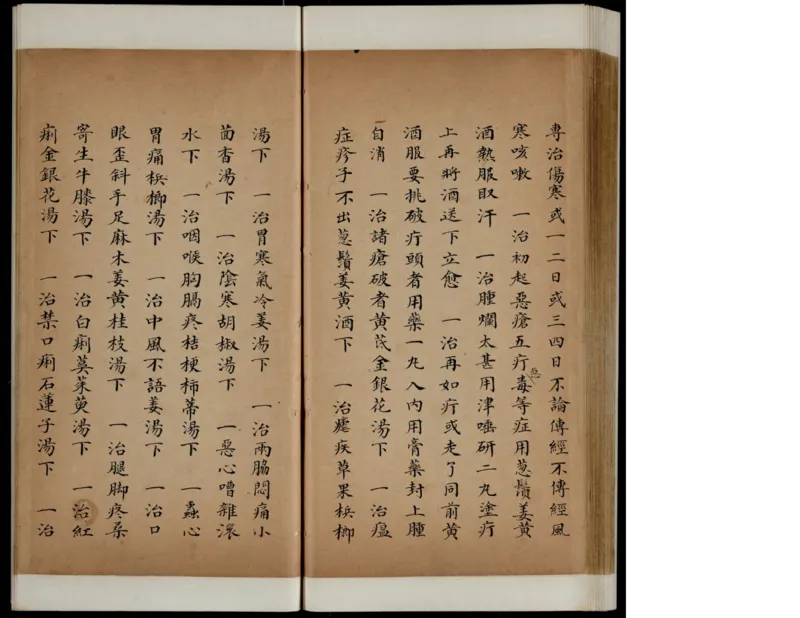 專治傷寒或一二日或三四日不論傳經不傳經風
寒咳嗽　一治初起惡瘡五疔毒等症用蔥鬚姜黃
酒熱服取汗　一治腫爛太甚用津唾研二丸塗疔
上再將酒送下立愈　一治再如疔或走了同前黃
酒服要挑破疔頭者用藥一丸入內用膏藥封上腫
自消　一治諸瘡破者黃芪金銀花湯下　一治瘟
症疹子不出蔥鬚姜黃酒下　一治瘧疾草果梹榔
湯下　一治胃寒氣冷姜湯下　一治兩脇悶痛小
茴香湯下　一治陰寒胡椒湯下　一惡心嘈雜滚
水下　一治咽喉胸膈疼桔梗柿蒂湯下　一蟲心
胃痛梹榔湯下　一治中風不語姜湯下　一治口
眼歪斜手足麻木姜黃桂枝湯下　一治腿脚疼桑
寄生牛膝湯下　一治白痢茱萸湯下　一治紅
痢金銀花湯下　一治禁口痢石蓮子湯下　一治